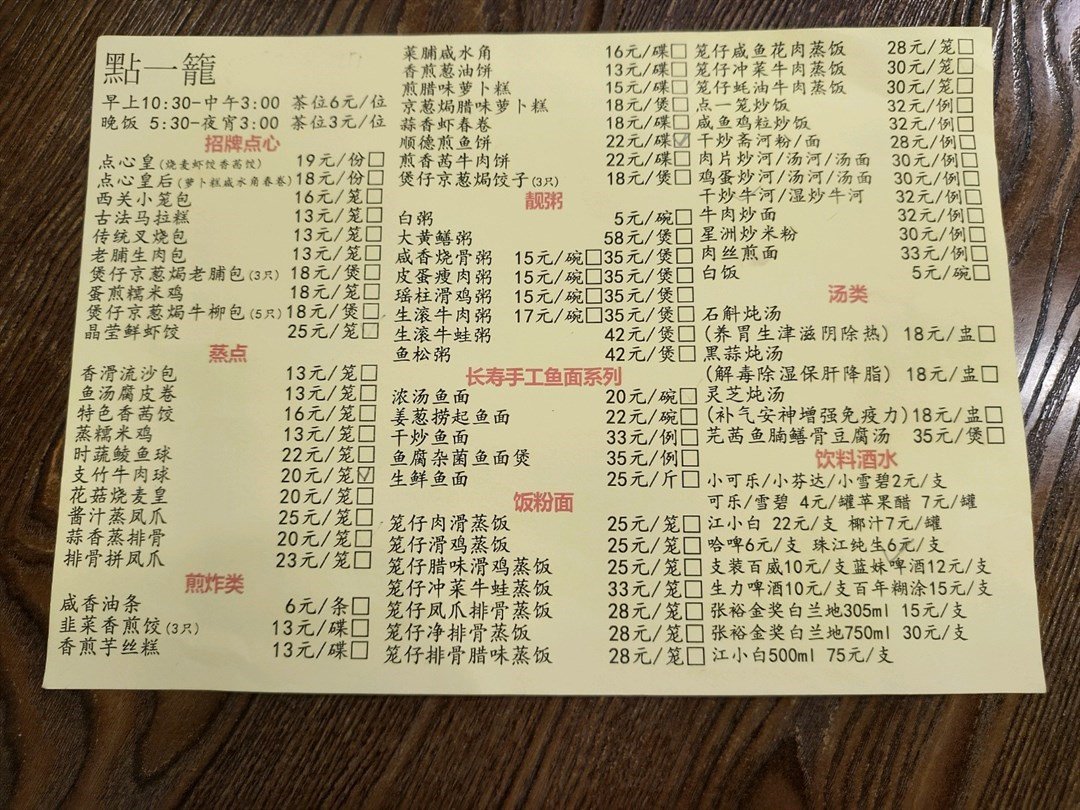 點一籠
早上10:30-中午3:00 茶位6元/位
晚饭 5:30-夜宵3:00 茶位3元/位
招牌点心
点心皇(烧麦虾饺香茜饺) 19元/份
点心皇后(萝卜糕咸水角春卷) 18元/份
西关小笼包 16元/笼
古法马拉糕 13元/笼
传统叉烧包 13元/笼
老脯生肉包 13元/笼
煲仔京葱焗老脯包(3只) 18元/煲
蛋煎糯米鸡 18元/笼
煲仔京葱焗牛柳包(5只) 18元/煲
晶莹鲜虾饺 25元/笼
蒸点
香滑流沙包 13元/笼
鱼汤腐皮卷 13元/笼
特色香茜饺 16元/笼
蒸糯米鸡 13元/笼
时蔬鲮鱼球 22元/笼
支竹牛肉球 20元/笼
花菇烧麦皇 20元/笼
酱汁蒸凤爪 25元/笼
蒜香蒸排骨 20元/笼
排骨拼凤爪 23元/笼
煎炸类
咸香油条 6元/条
韭菜香煎饺(3只) 13元/碟
香煎芋丝糕 13元/碟
菜脯咸水角 16元/碟
香煎葱油饼 13元/碟
煎腊味萝卜糕 15元/碟
京葱焗腊味萝卜糕 18元/煲
蒜香虾春卷 18元/碟
顺德煎鱼饼 22元/碟
煎香茜牛肉饼 22元/碟
煲仔京葱焗饺子(3只) 18元/煲
靓粥
白粥 5元/碗
大黄鳝粥 58元/煲
咸香烧骨粥 15元/碗 35元/煲
皮蛋瘦肉粥 15元/碗 35元/煲
瑶柱滑鸡粥 15元/碗 35元/煲
生滚牛肉粥 17元/碗 35元/煲
生滚牛蛙粥 42元/煲
鱼松粥 42元/煲
长寿手工鱼面系列
浓汤鱼面 20元/碗
姜葱捞起鱼面 22元/碗
干炒鱼面 33元/例
鱼腐杂菌鱼面煲 35元/例
生鲜鱼面 25元/斤
饭粉面
笼仔肉滑蒸饭 25元/笼
笼仔滑鸡蒸饭 25元/笼
笼仔腊味滑鸡蒸饭 25元/笼
笼仔冲菜牛蛙蒸饭 33元/笼
笼仔凤爪排骨蒸饭 28元/笼
笼仔净排骨蒸饭 28元/笼
笼仔排骨腊味蒸饭 28元/笼
笼仔咸鱼花肉蒸饭 28元/笼
笼仔冲菜牛肉蒸饭 30元/笼
笼仔蚝油牛肉蒸饭 30元/笼
点一笼炒饭 32元/例
咸鱼鸡粒炒饭 32元/例
干炒斋河粉/面 28元/例
肉片炒河/汤河/汤面 30元/例
鸡蛋炒河/汤河/汤面 30元/例
干炒牛河/湿炒牛河 32元/例
牛肉炒面 32元/例
星洲炒米粉 30元/例
肉丝煎面 33元/例
白饭 5元/碗
汤类
石斛炖汤
(养胃生津滋阴除热) 18元/盅
黑蒜炖汤
(解毒除湿保肝降脂) 18元/盅
灵芝炖汤
(补气安神增强免疫力) 18元/盅
芫茜鱼腩鳝骨豆腐汤 35元/煲
饮料酒水
小可乐/小芬达/小雪碧2元/支
可乐/雪碧 4元/罐苹果醋 7元/罐
江小白 22元/支 椰汁7元/罐
哈啤6元/支 珠江纯生6元/支
支装百威10元/支蓝妹啤酒12元/支
生力啤酒10元/支百年糊涂15元/支
张裕金奖白兰地305ml 15元/支
张裕金奖白兰地750ml 30元/支
江小白500ml 75元/支